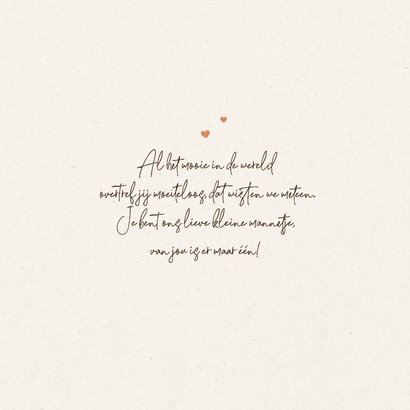 Al het mooie in de wereld
overtref jij moeiteloos, dat wisten we meteen.
Je bent ons lieve kleine mannetje,
van jou is er maar één!